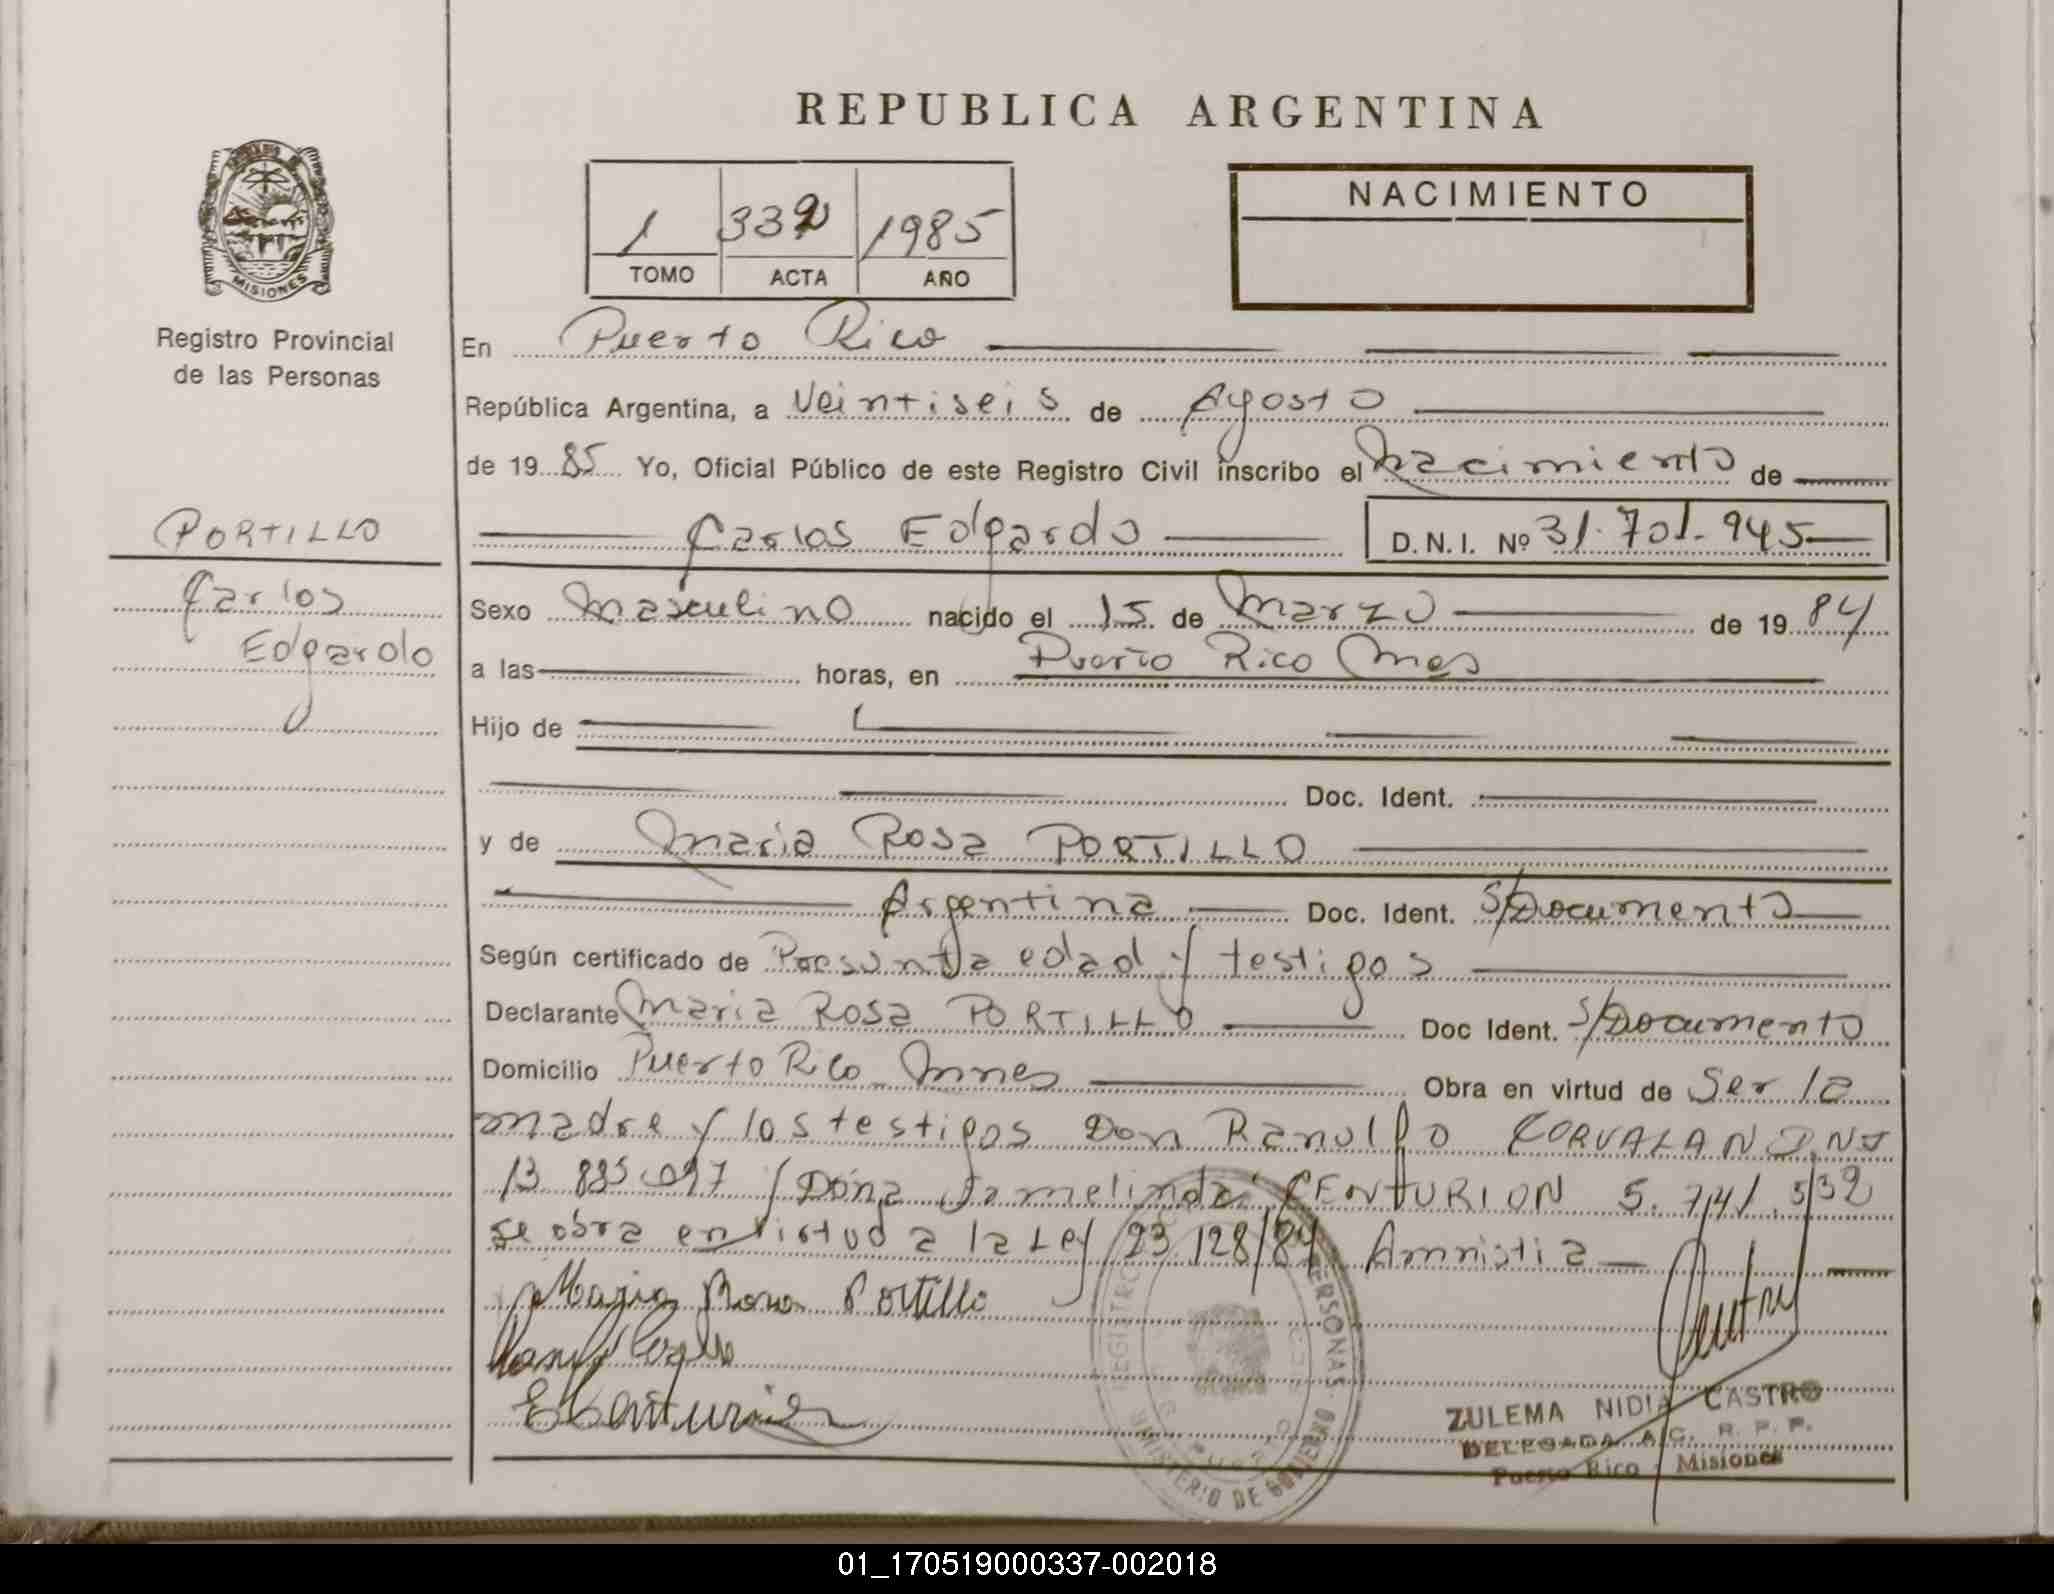 REPUBLICA ARGENTINA
MISIONES
Registro Provincial
de las Personas
1 332 1985
TOMO ACTA AÑO
NACIMIENTO
En Puerto Rico
República Argentina, a Veintiseis de Agosto
de 1985 Yo, Oficial Público de este Registro Civil inscribo el Nacimiento de
PORTILLO
Carlos Edgardo D.N.I. Nº 31.701.945
Carlos
Edgardo
Sexo Masculino nacido el 15 de Marzo de 1984
a las horas, en Puerto Rico Mnes
Hijo de
Doc. Ident.
y de Maria Rosa PORTILLO
Argentina Doc. Ident. S/Documento
Según certificado de Presunta edad y testigos
Declarante Maria Rosa PORTILLO Doc Ident. S/Documento
Domicilio Puerto Rico Mnes Obra en virtud de Ser la
madre y los testigos Don Ranulfo CORVALAN DNI
13 885 097 y Doña CENTURION 5.741.532
se obra en virtud a la Ley 23.128/84 Amnistia
Maria Rosa Portillo
ZULEMA NIDIA CASTRO
DELEGADA R. P. P.
Puerto Rico - Misiones
REGISTRO PERSONAS
MINISTERIO DE GOBIERNO
01_170519000337-002018